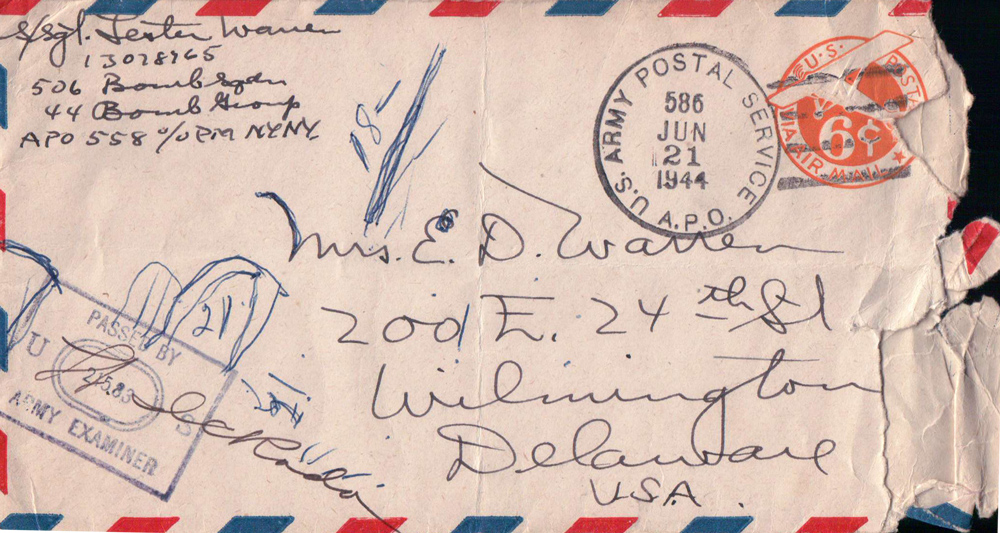 S/Sgt. Lester Warren
13028965
506 Bomb Sqdn
44 Bomb Group
APO 558 c/o PM NY.NY.
18-
U.S. ARMY POSTAL SERVICE
586
JUN
21
1944
A.P.O.
U.S. POSTA
6¢
VIA AIR MAIL
Mrs. E. D. Warren
200 E. 24th St
Wilmington
Delaware
U.S.A.
21
PASSED BY
U S
ARMY EXAMINER